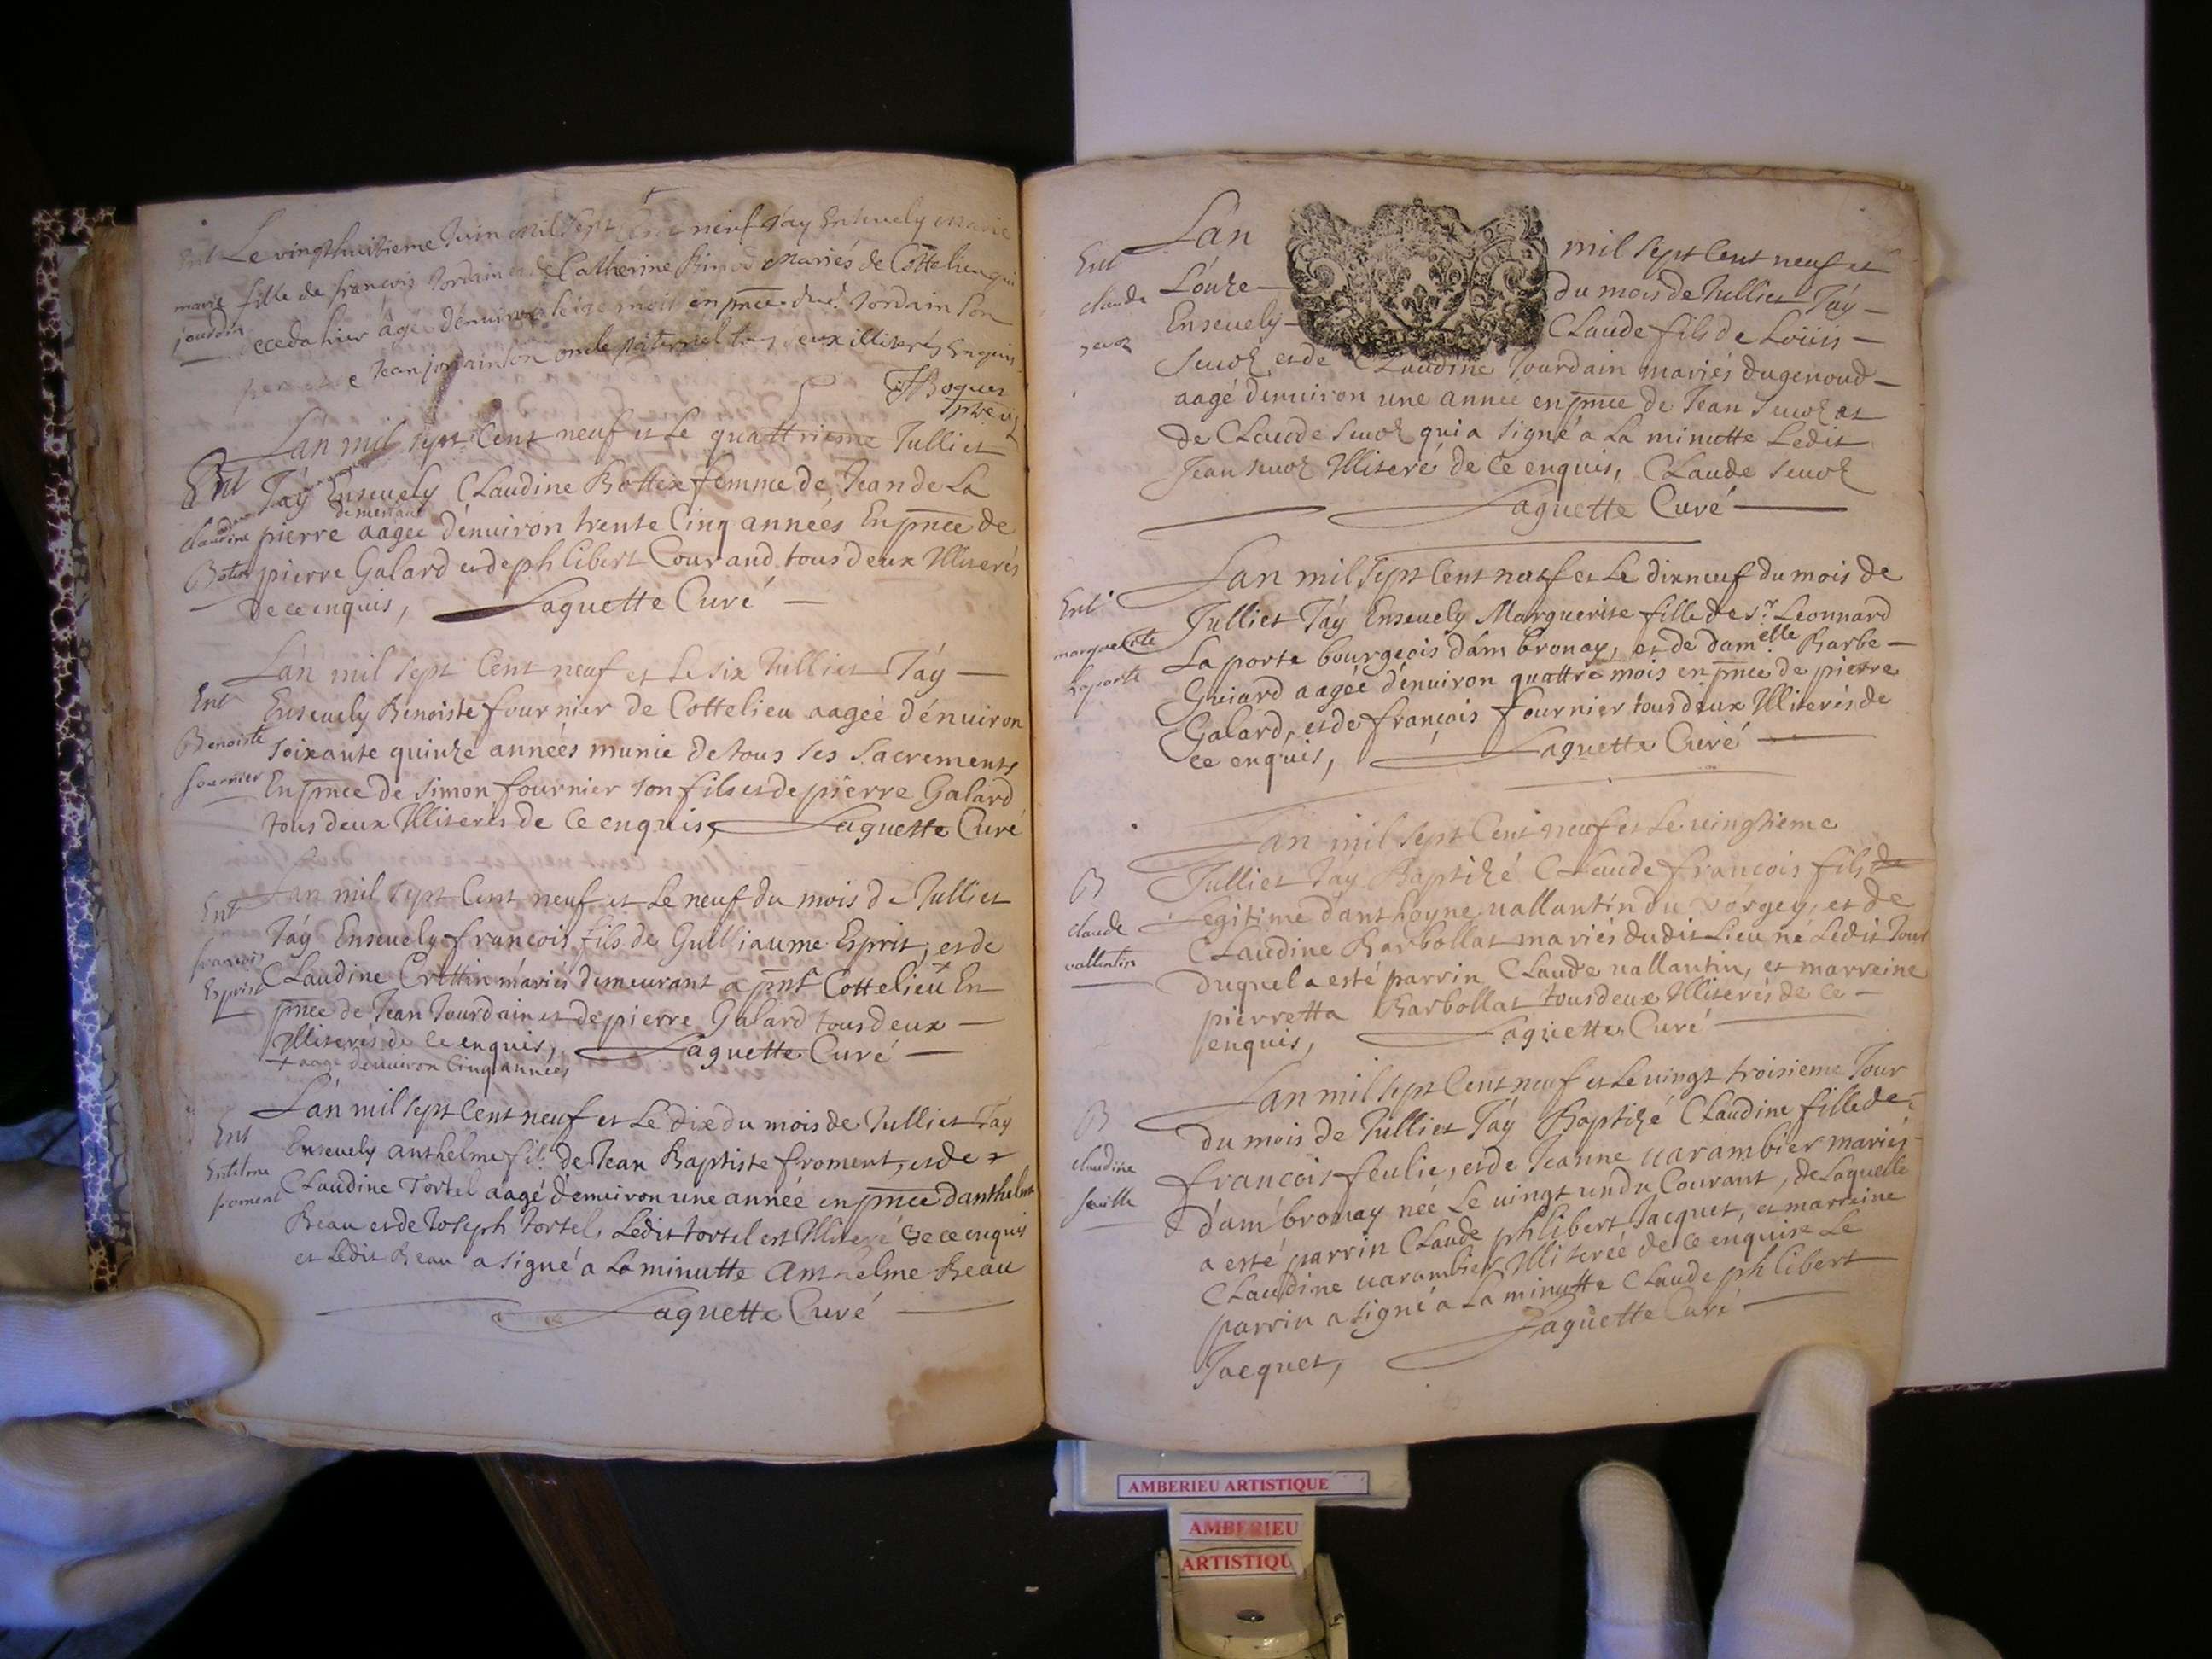 Ent
marie
jourdin
Le vingthuitieme Juin mil sept cent neuf Jay Ensevely marie
fille de francois Jordain et de Catherine mariés de Cottelieu
decedа hier âgée d'énuiron seize mois en pnce dud. Jordain son
pere et de Jean jordain son oncle paternel tous deux illiterés enquis
Ent
claudine
Botier
Lán mil sept Cent neuf et Le quattrieme Julliet
Jáy Enseuely Claudine Bottex femme de Jean de La
pierre demeurant aagée d'énuiron trente Cinq années En pnce de
pierre Galard et de phlibert Courand tous deux Illiterés
de ce enquis, Laguette Curé
Ent
Benoiste
fournier
Lán mil sept Cent neuf et Le six Julliet Jáy
Enseuely Benoiste fournier de Cottelieu aagéé d'énuiron
soixante quinze années munie de tous ses Sacrements
En pnce de Simon fournier son fils et de pierre Galard
tous deux Illiterés de Ce enquis, Laguette Curé
Ent
francois
Esprit
Lan mil sept Cent neuf et Le neuf du mois de Julliet
Jáy Enseuely francois fils de Gulliaume Esprit, et de
Claudine Crettin máriés demeurant a pnt Cottelieu + En
pnce de Jean Jourdain et de pierre Galard tous deux
Illiterés de Ce enquis, Laguette Curé
+ aagé denuiron Cinq années
Ent
Entelme
froment
Lán mil sept Cent neuf et Le dix du mois de Julliet Jáy
Enseuely anthelme fils de Jean Baptiste froment, et de
Claudine Tortel aagé d'énuiron une année en pnce danthelme
Beau et de Joseph tortel, Ledit tortel est Illiteré de ce enquis
et Ledit Beau a signé a La minutte Anthelme Beau
Laguette Curé
Ent
claude
Lan mil sept Cent neuf et
L'ónze du mois de Julliet Jáy
Enseuely Claude fils de Loüis
Seuoz et de Claudine Jourdain mariés dugenoud
aagé d'enuiron une année en pnce de Jean Seuoz et
de Claude Seuoz qui a signé a La minutte Ledit
Jean seuoz Illiteré de Ce enquis, Claude Seuoz
Laguette Curé
Ent
marguerite
Laporte
Lan mil sept Cent neuf et Le dixneuf du mois de
Julliet Jáy Enseuely Marguerite fille de Sr. Leonnard
La porte bourgeois d'ám bronay, et de damelle Barbe
Guiard aagéé d'énuiron quattre mois en pnce de pierre
Galard, et de françois fournier tous deux Illiterés de
ce enquis, Laguette Curé
B
claude
vallentin
Lan mil sept Cent neuf et Le uingtieme
Julliet Jáy Baptizé Claude francois fils de
Legitime d'anthoyne uallantin du vorgey, et de
Claudine Barbollat mariés dudit Lieu né Ledit Jour
Duquel a esté parrin Claude uallantin, et marreine
pierretta Barbollat tous deux Illiterés de ce
enquis, Laguette Curé
B
claudine
feuille
Lan mil sept Cent neuf et Le uingt troisieme Jour
du mois de Julliet Jáy Baptizé Claudine fille de
francois feulie, et de Jeanne uarambier mariés
d'am'bronay néé Le uingt un du Courant, de Laquelle
a esté parrin Claude phlibert Jacquet, et marreine
Claudine uarambier Illiteréé de ce enquise Le
parrin a signé a La minutte Claude phlibert
Jacquet, Laguette Curé
AMBERIEU ARTISTIQUE
AMBERIEU
ARTISTIQU